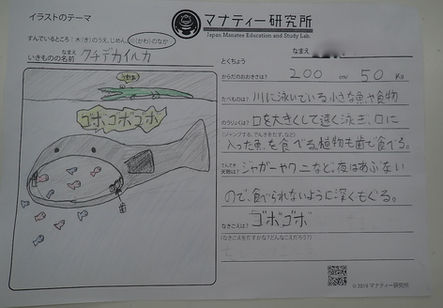 イラストのテーマ
マナティー研究所
Japan Manatee Education and Study Lab.
すんでいるところ：木(き)のうえ、じめん、川(かわ)のなか
なまえ
いきものの名前 クチデカイルカ
なまえ
とくちょう
からだのおおきさは？ 200 cm 50 Kg
たべものは？ 川に泳いでいる小さな魚や植物
のうりょくは？ 口を大きくして速く泳ぎ、口に
(ジャンプする、でんきをだす、など)
入った魚を食べる。植物も歯で食べる。
天敵は？ ジャガーやワニなど；夜はあぶない
ので、食べられないように深くもぐる。
なきごえは？ ゴボゴボ
(なきごえをだすかな？どんなこえだろう？)
ゴボゴボゴボ
©2019 マナティー研究所